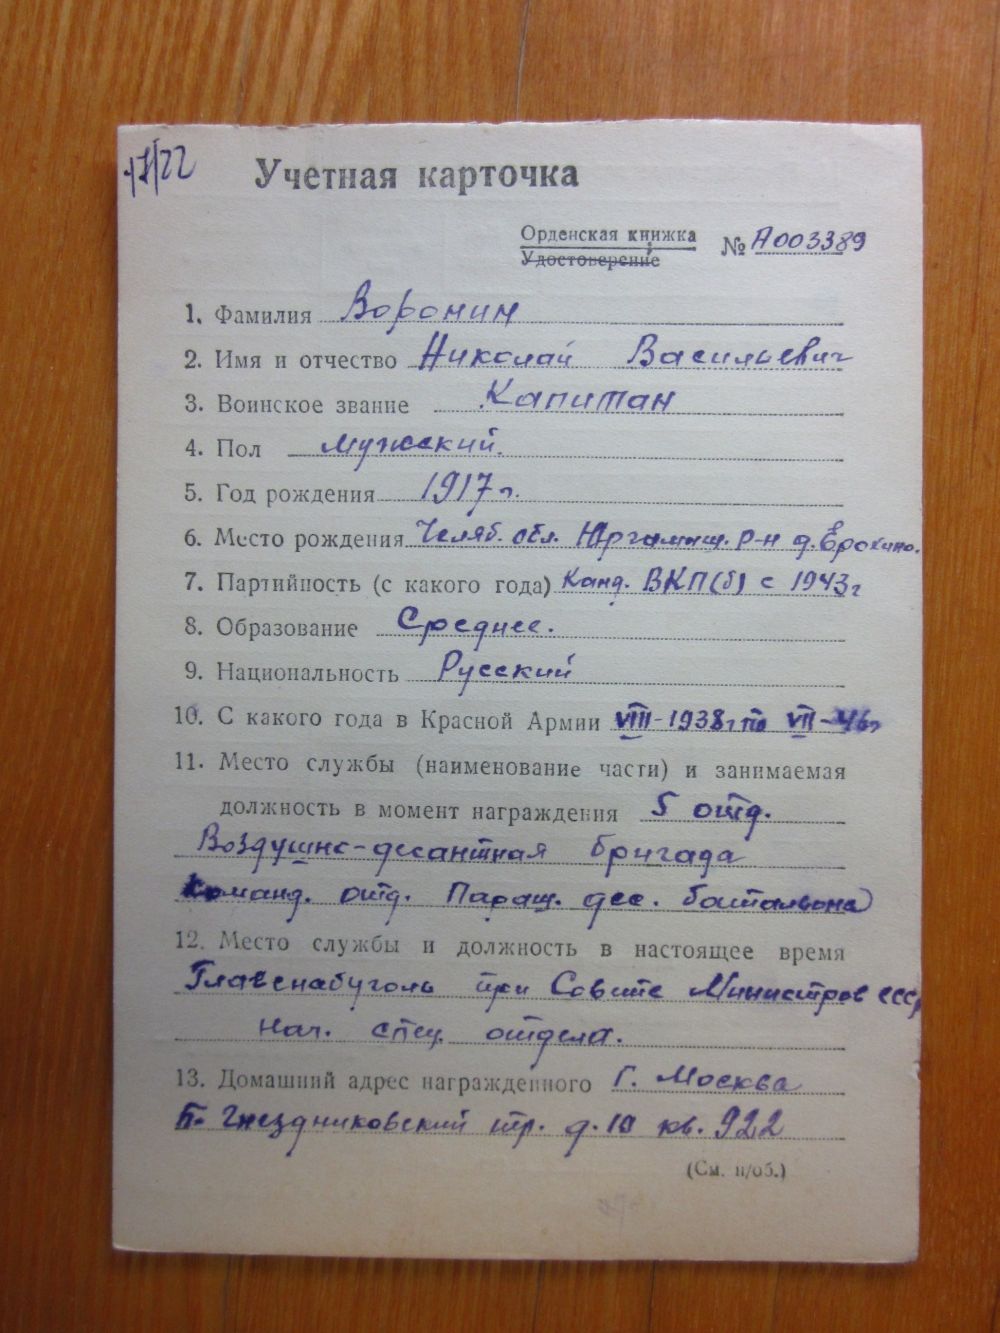 17/22
Учетная карточка
Орденская книжка № А003389
Удостоверение
1. Фамилия Воронин
2. Имя и отчество Николай Васильевич
3. Воинское звание Капитан
4. Пол мужской.
5. Год рождения 1917 г.
6. Место рождения Челяб. обл. Юргамыш. р-н д. Ерохино.
7. Партийность (с какого года) Канд. ВКП(б) с 1943 г
8. Образование Среднее.
9. Национальность Русский
10. С какого года в Красной Армии VIII-1938г по VII-46г
11. Место службы (наименование части) и занимаемая
должность в момент награждения 5 отд.
Воздушно-десантная бригада
Команд. отд. Параш. дес. батальона
12. Место службы и должность в настоящее время
Главснабуголь при Совете Министров СССР
Нач. спец. отдела.
13. Домашний адрес награжденного г. Москва
Б. Гнездниковский пр. д. 10 кв. 922
(См. н/об.)